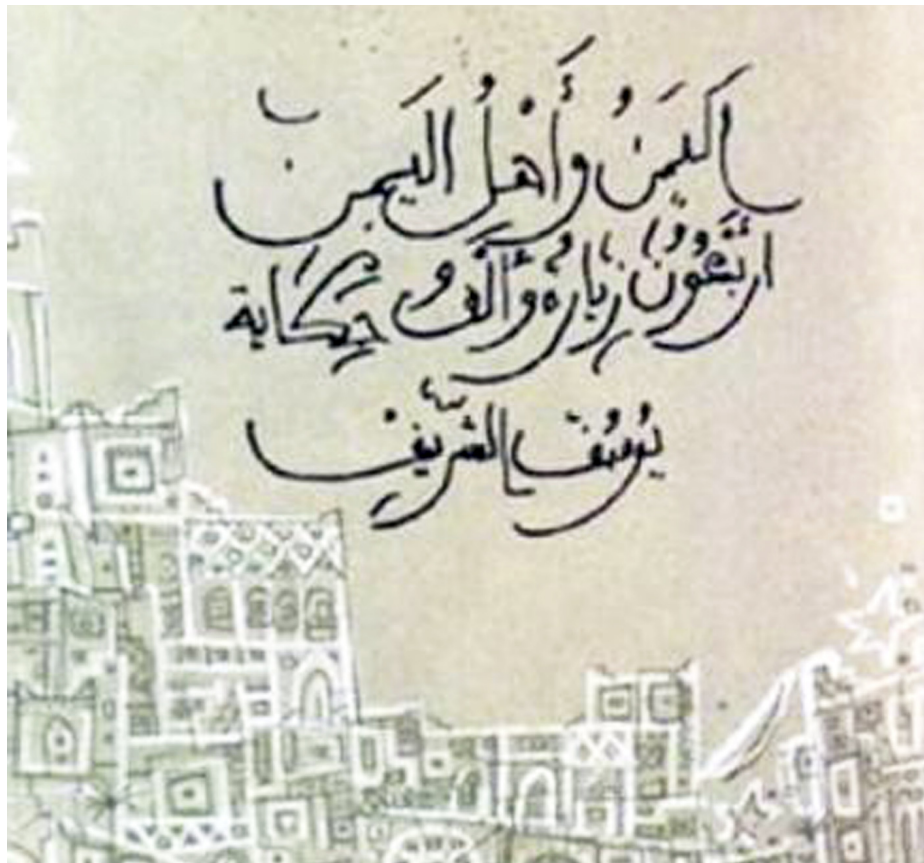 اليَمَنُ وَأَهْلُ اليَمَن
أربَعُونُ زيارةً وَألفُ حِكَاية
يوسُف الشّريف